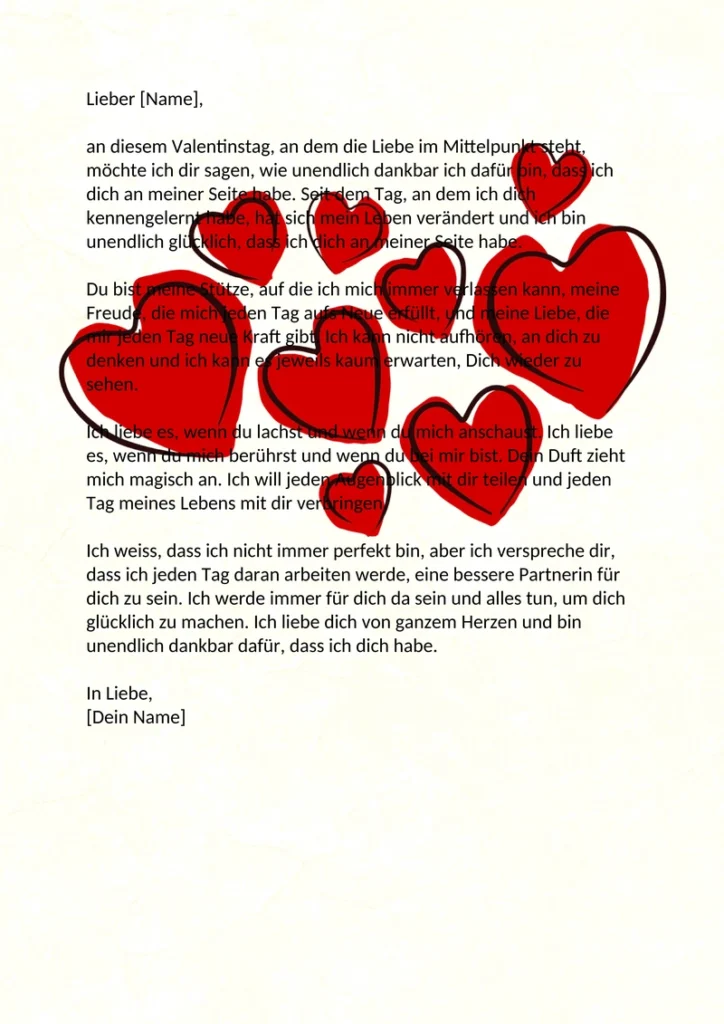 Lieber [Name],
an diesem Valentinstag, an dem die Liebe im Mittelpunkt steht,
möchte ich dir sagen, wie unendlich dankbar ich dafür bin, dass ich
dich an meiner Seite habe. Seit dem Tag, an dem ich dich
kennengelernt habe, hat sich mein Leben verändert und ich bin
unendlich glücklich, dass ich dich an meiner Seite habe.
Du bist meine Stütze, auf die ich mich immer verlassen kann, meine
Freude, die mich jeden Tag aufs Neue erfüllt, und meine Liebe, die
mir jeden Tag neue Kraft gibt. Ich kann nicht aufhören, an dich zu
denken und ich kann es jeweils kaum erwarten, Dich wieder zu
sehen.
Ich liebe es, wenn du lachst und wenn du mich anschaust. Ich liebe
es, wenn du mich berührst und wenn du bei mir bist. Dein Duft zieht
mich magisch an. Ich will jeden Augenblick mit dir teilen und jeden
Tag meines Lebens mit dir verbringen.
Ich weiss, dass ich nicht immer perfekt bin, aber ich verspreche dir,
dass ich jeden Tag daran arbeiten werde, eine bessere Partnerin für
dich zu sein. Ich werde immer für dich da sein und alles tun, um dich
glücklich zu machen. Ich liebe dich von ganzem Herzen und bin
unendlich dankbar dafür, dass ich dich habe.
In Liebe,
[Dein Name]